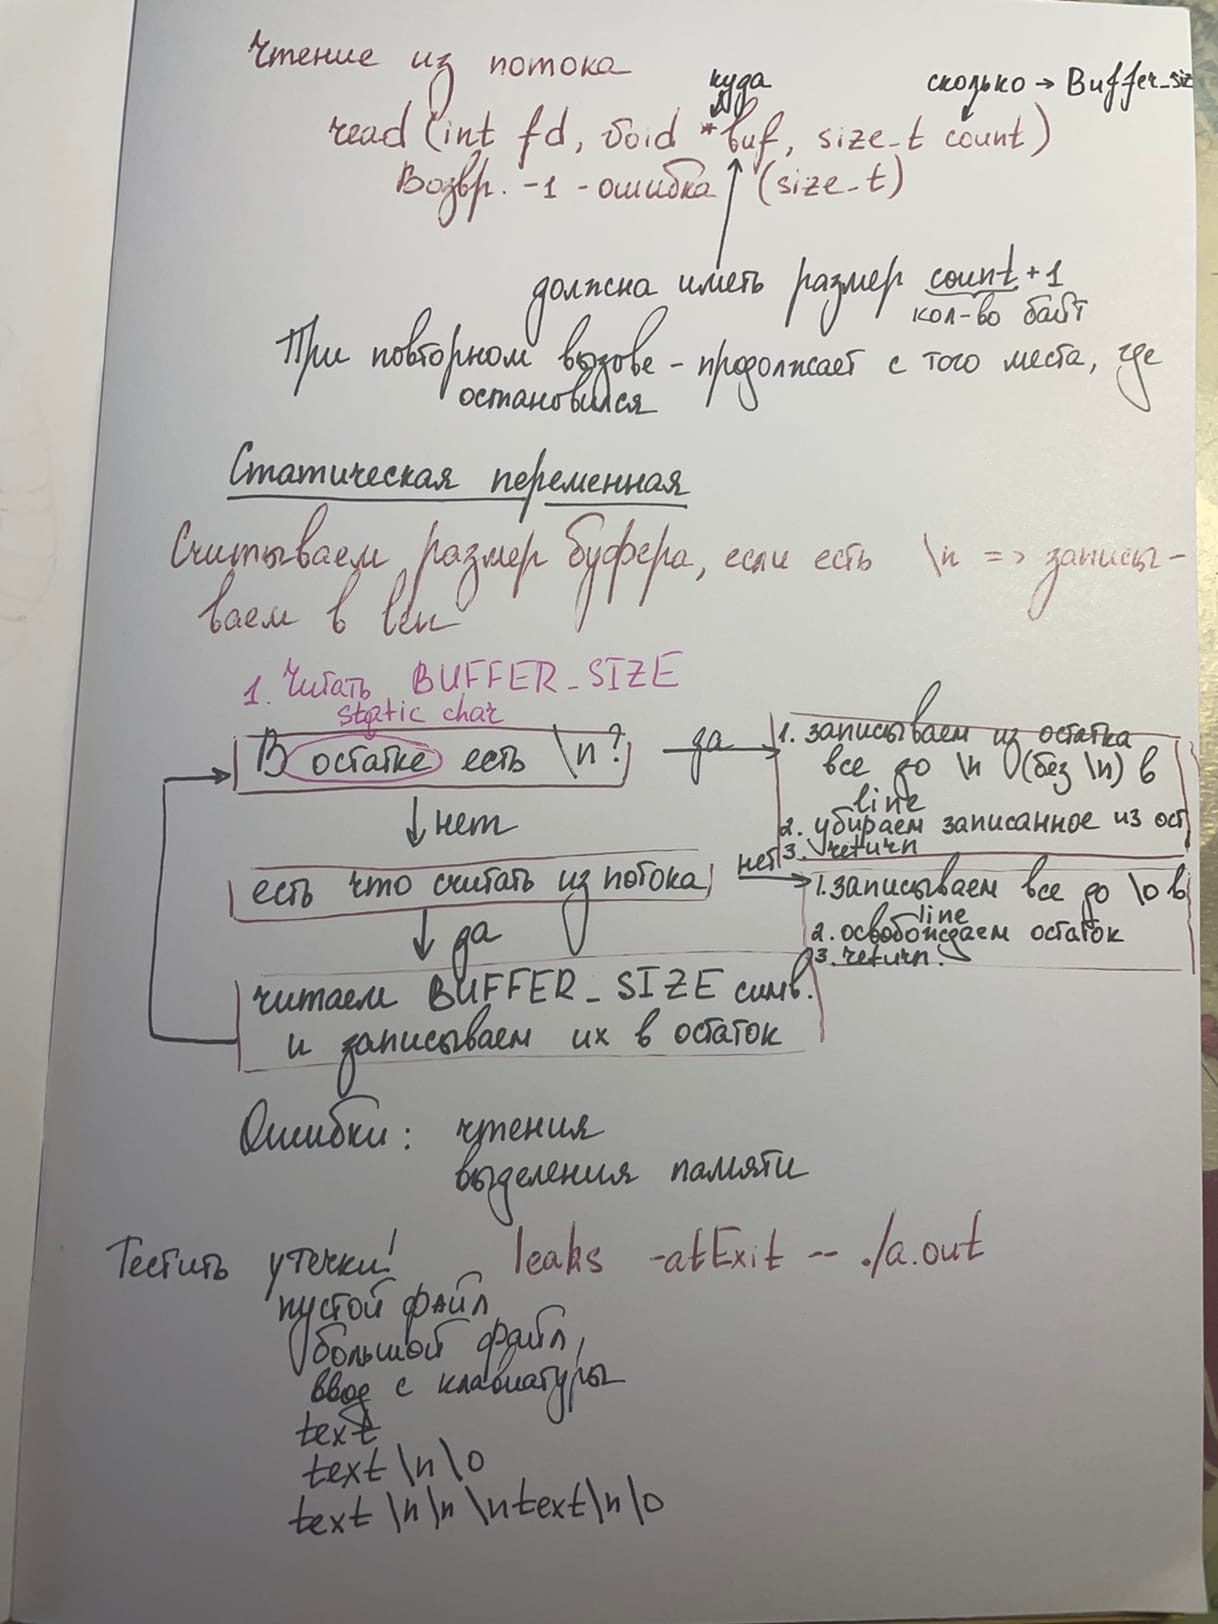 Чтение из потока
куда
сколько → Buffer_siz
read (int fd, void *buf, size_t count)
Возвр. -1 - ошибка (size_t)
должна иметь размер count +1
кол-во байт
При повторном вызове - продолжает с того места, где
остановился
Статическая переменная
Считываем размер буфера, если есть \n => записы-
ваем в len
1. Читать BUFFER_SIZE
static char
В остатке есть \n?
да
1. записываем из остатка
все до \n (без \n) в
line
2. убираем записанное из ост
3. return
нет
есть что считать из потока
нет
1. записываем все до \0 в
line
2. освобождаем остаток
3. return
да
читаем BUFFER_SIZE симв.
и записываем их в остаток
Ошибки: чтения
выделения памяти
Тестить утечки! leaks -atExit -- ./a.out
пустой файл
большой файл,
ввод с клавиатуры
text
text \n\0
text \n\n \ntext\n\0